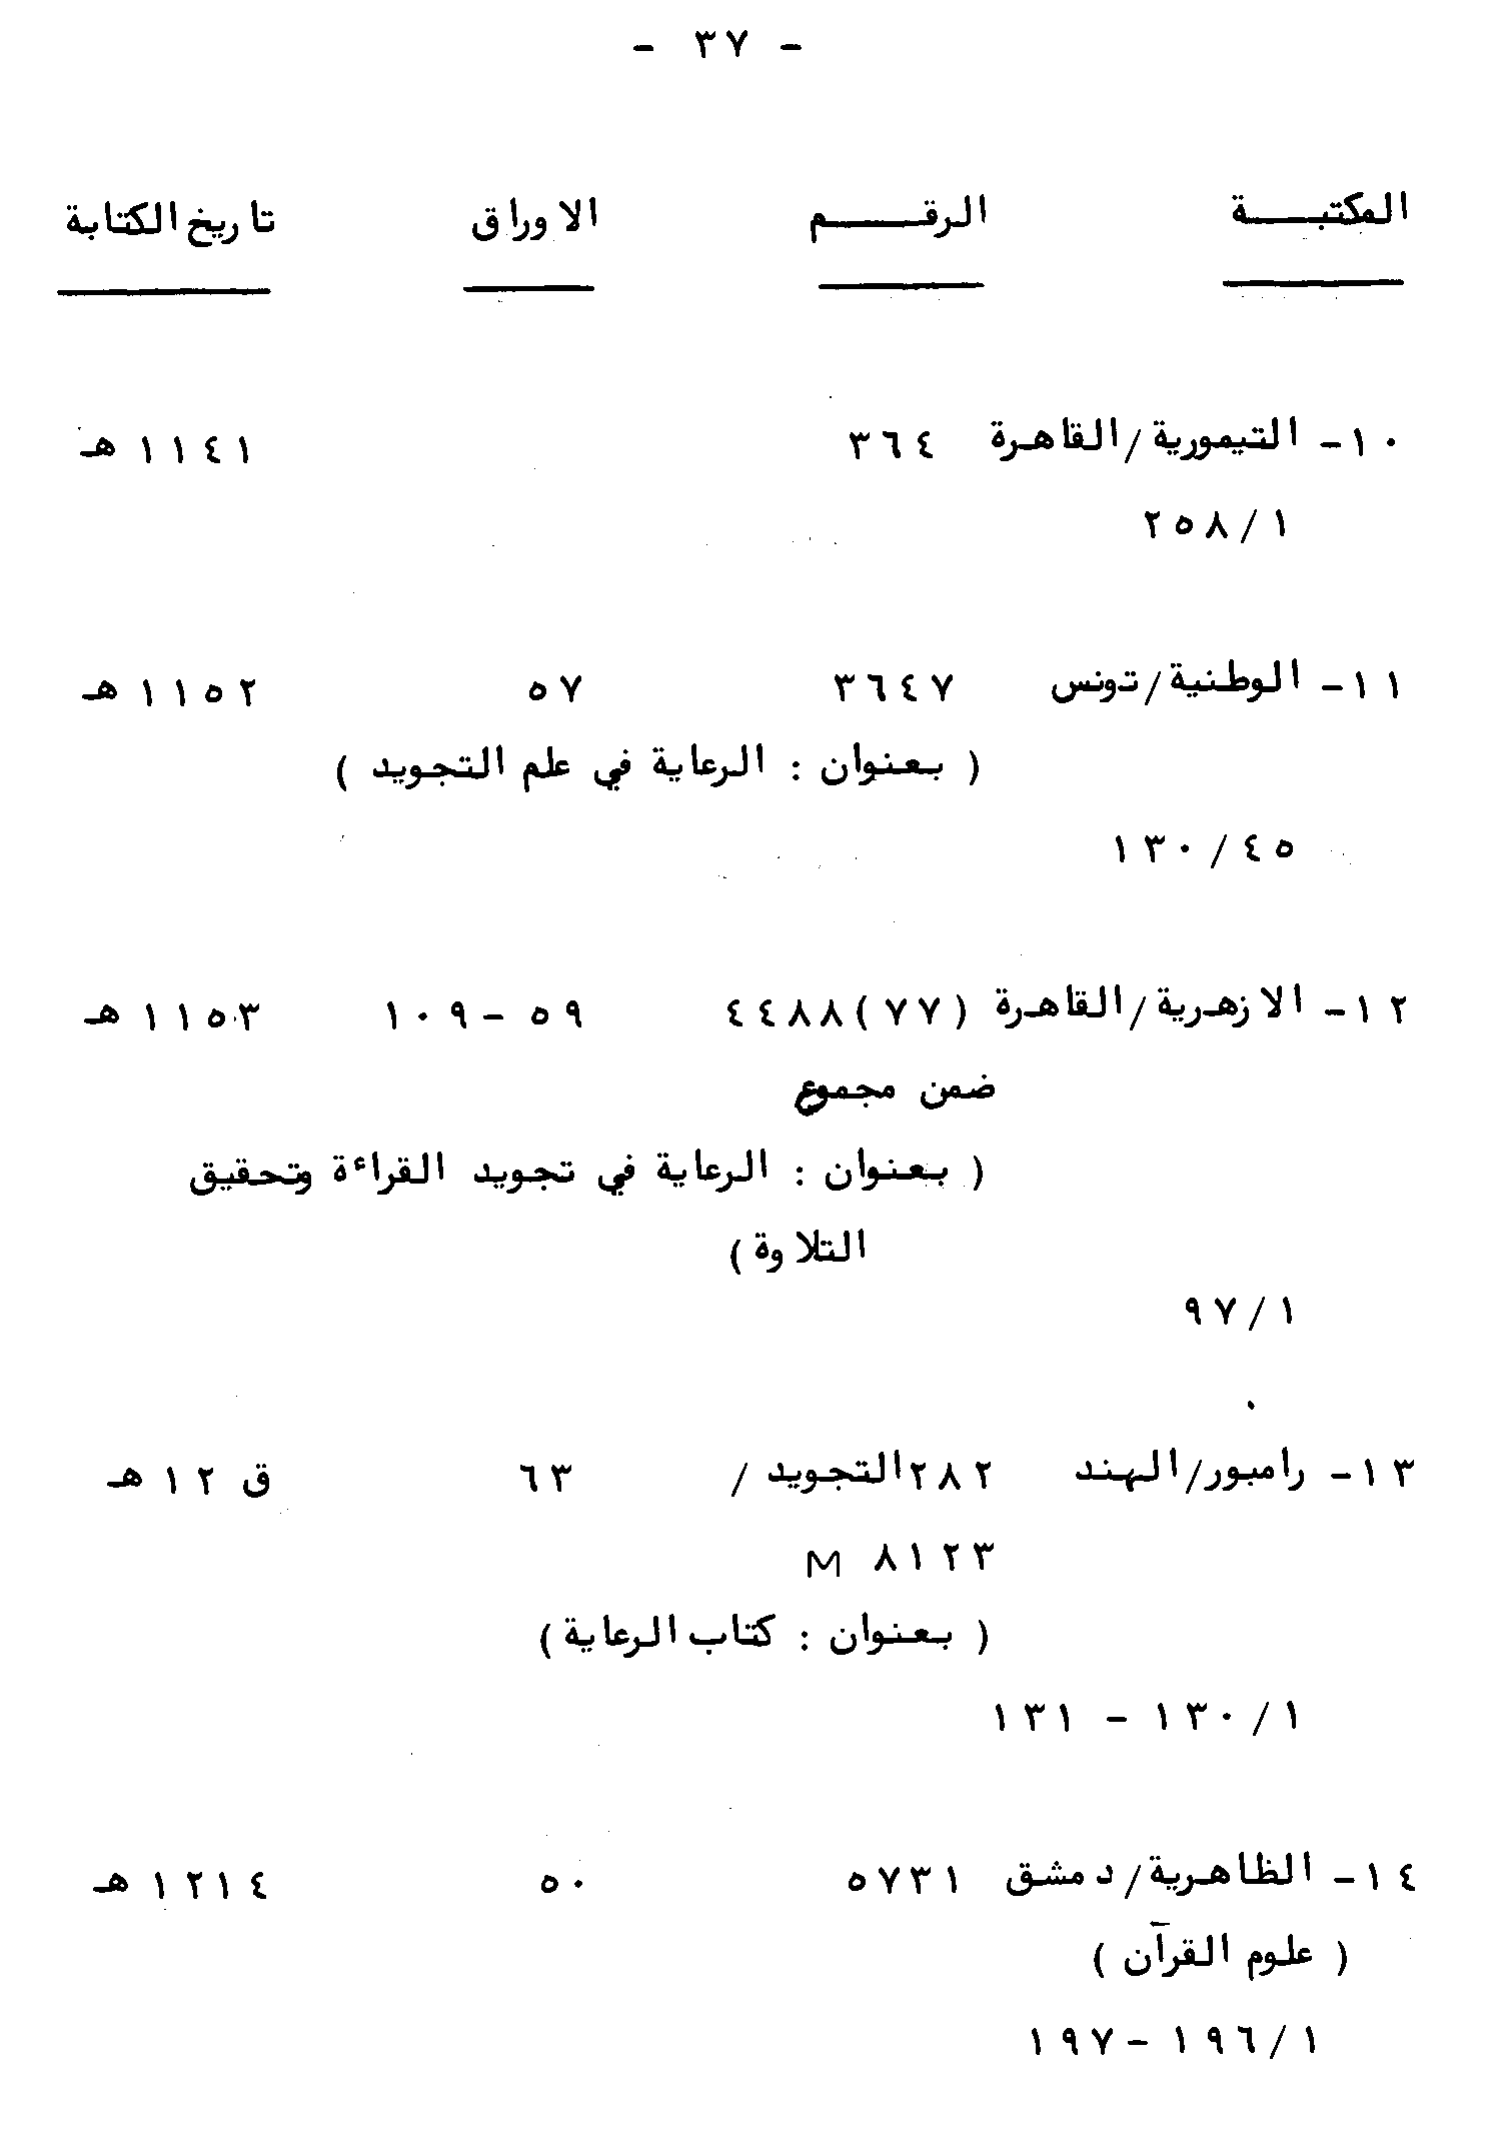 - ٣٧ -
المكتبـــة الرقـــم الاوراق تاريخ الكتابة
١٠- التيمورية/القاهرة ٣٦٤ ١١٤١ هـ
١/٢٥٨
١١- الوطنية/تونس ٣٦٤٧ ٥٧ ١١٥٢ هـ
( بعنوان : الرعاية في علم التجويد )
٤٥/١٣٠
١٢- الازهرية/القاهرة (٧٧)٤٤٨٨ ٥٩ - ١٠٩ ١١٥٣ هـ
ضمن مجموع
( بعنوان : الرعاية في تجويد القراءة وتحقيق
التلاوة )
١/٩٧
١٣- رامبور/الهند ٢٨٢ التجويد / ٦٣ ق ١٢ هـ
M ٨١٢٣
( بعنوان : كتاب الرعاية )
١/١٣٠ - ١٣١
١٤- الظاهرية/دمشق ٥٧٣١ ٥٠ ١٢١٤ هـ
( علوم القرآن )
١/١٩٦ - ١٩٧